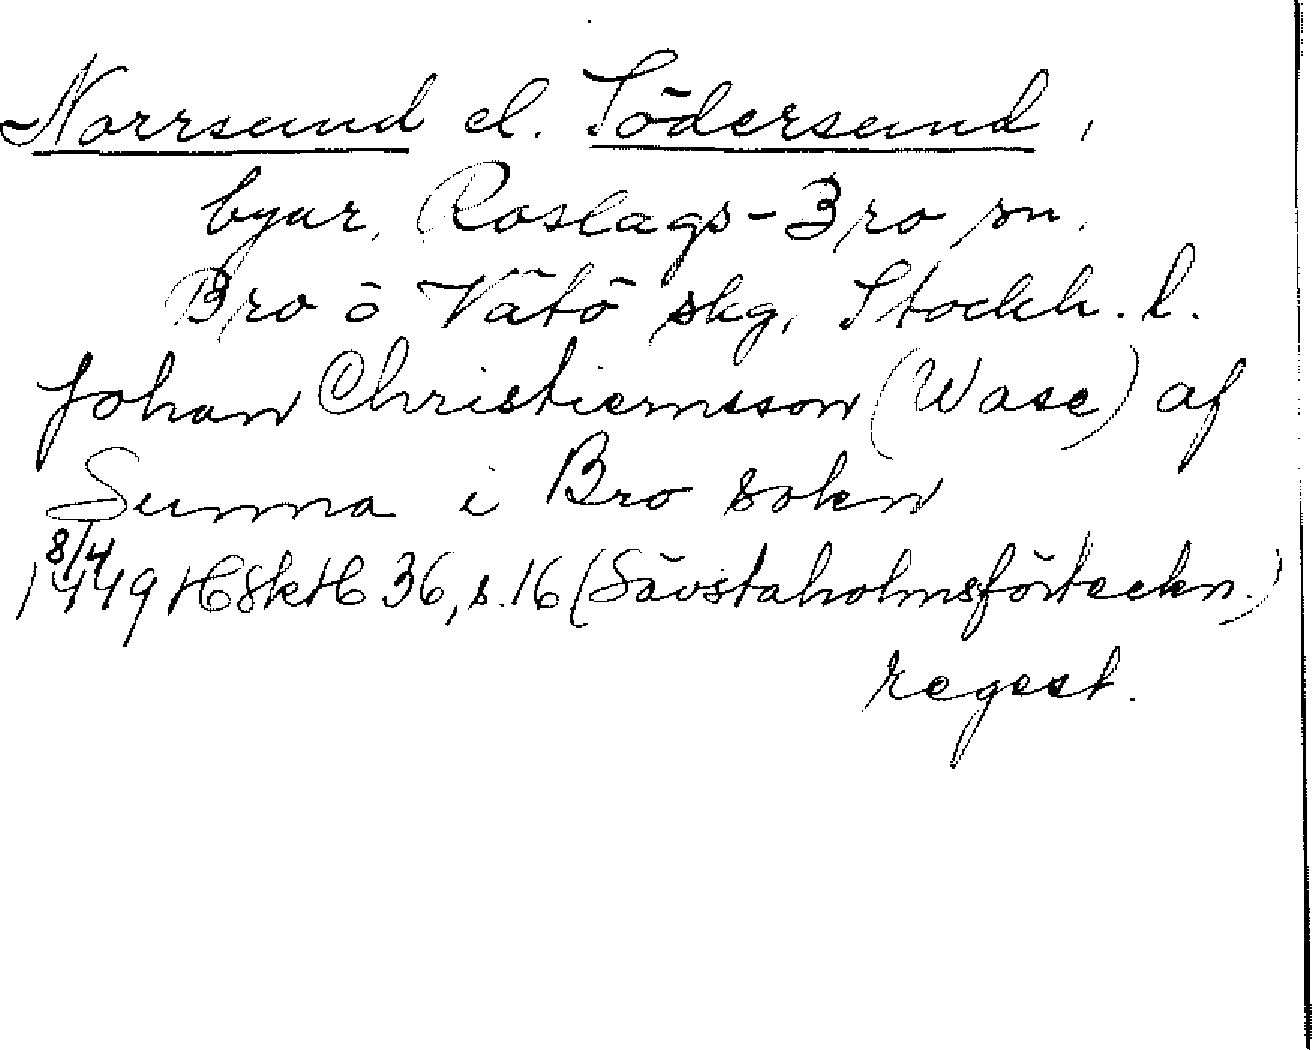 Norrsund el. Södersund,
byar, Roslags-Bro sn.
Bro o Vätö skg, Stockh. l.
Johan Christiernsson (Wase) af
Sunna i Bro sokn
8/4
1449 HSkH 36, s. 16 (Sävstaholmsförteckn.)
regest.